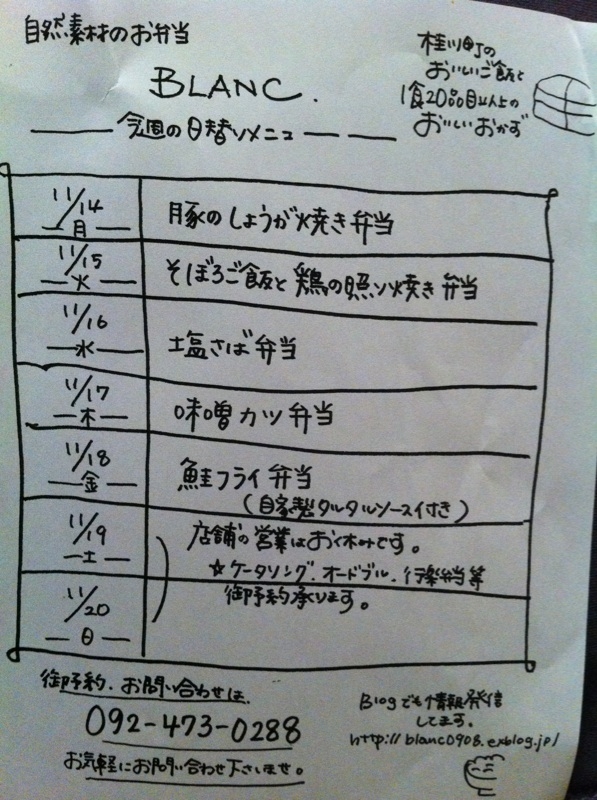 自然素材のお弁当
BLANC.
桂川町の
おいしいご飯と
1食20品目以上の
おいしいおかず
今週の日替りメニュー
11/14
月
豚のしょうが焼き弁当
11/15
火
そぼろご飯と鶏の照り焼き弁当
11/16
水
塩さば弁当
11/17
木
味噌カツ弁当
11/18
金
鮭フライ弁当
(自家製タルタルソース付き)
11/19
土
店舗の営業はお休みです。
☆ケータリング.オードブル.行楽弁当等
11/20
日
御予約承ります。
御予約.お問い合わせは.
092-473-0288
お気軽にお問い合わせ下さいませ。
Blogでも情報発信
してます。
http://blanc0908.exblog.jp/